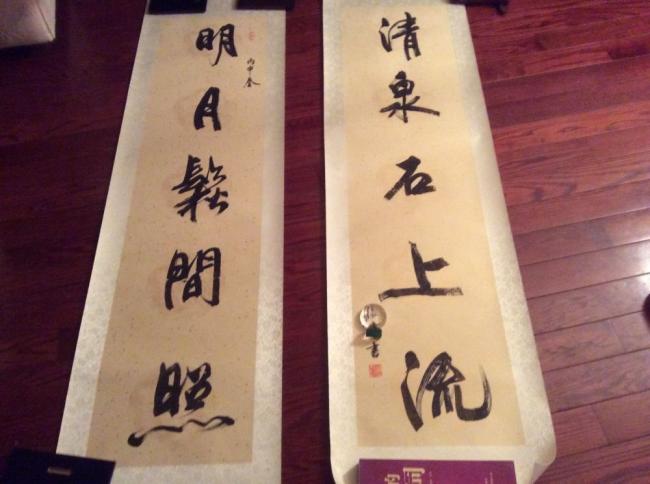 明月鬆間照
丙申
清泉石上流
書